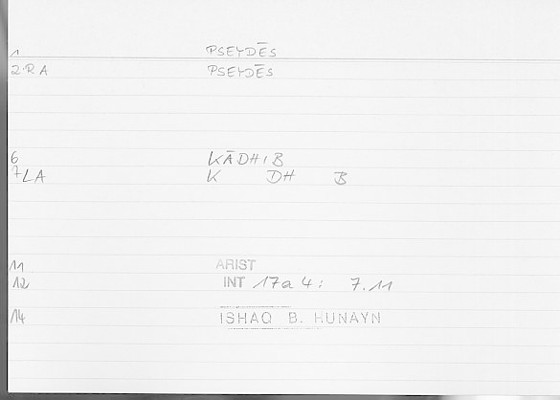 1 PSEYDĒS
2.RA PSEYDĒS
6 KĀDHIB
7LA K DH B
11 ARIST
12 INT 17a 4: 7.11
14 ISHAQ B. HUNAYN